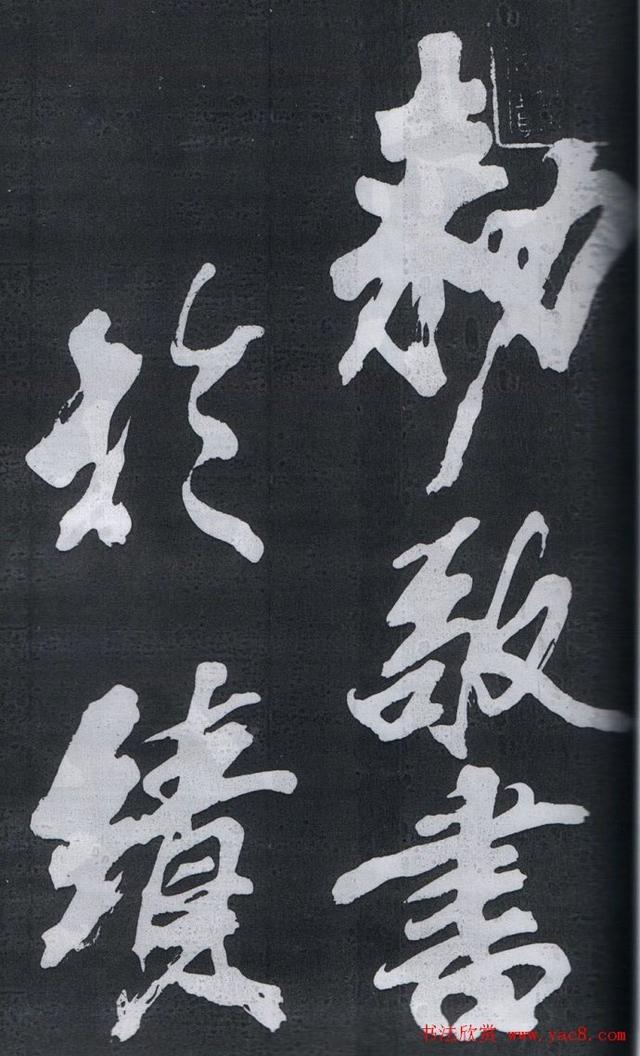 勅敢書
於績
书法欣赏 www.yac8.com